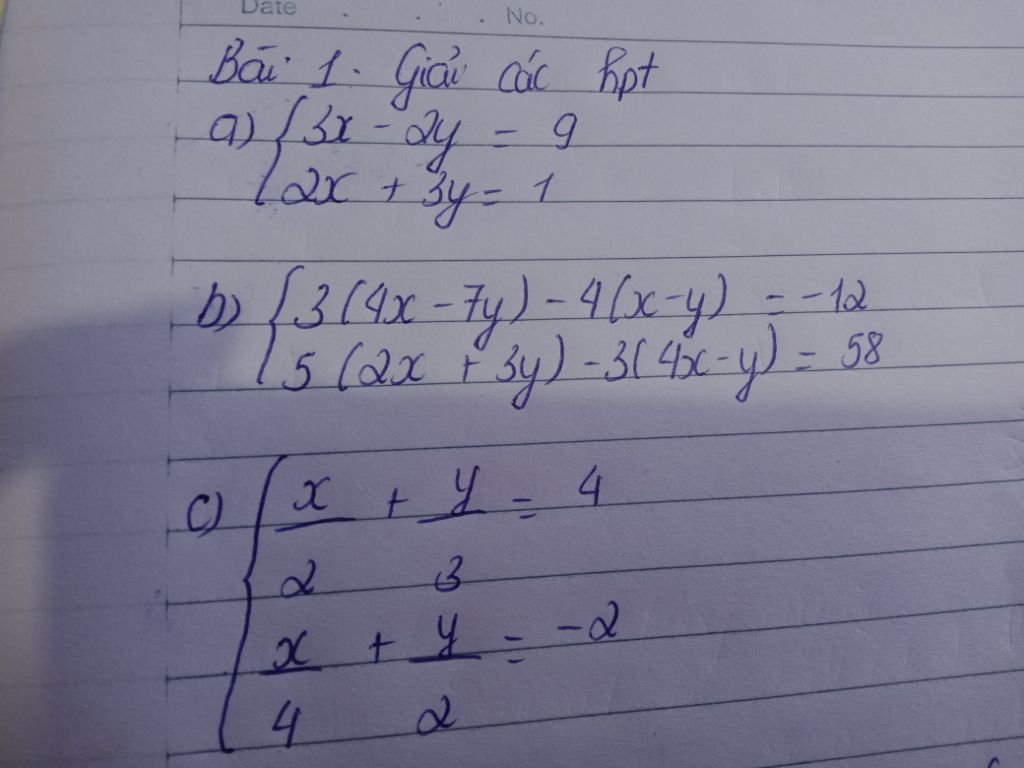 Date . . . No.
Bài 1. Giải các hpt
a) { 3x - 2y = 9
2x + 3y = 1
b) { 3(4x - 7y) - 4(x - y) = -12
5(2x + 3y) - 3(4x - y) = 58
c) { x/2 + y/3 = 4
x/4 + y/2 = -2